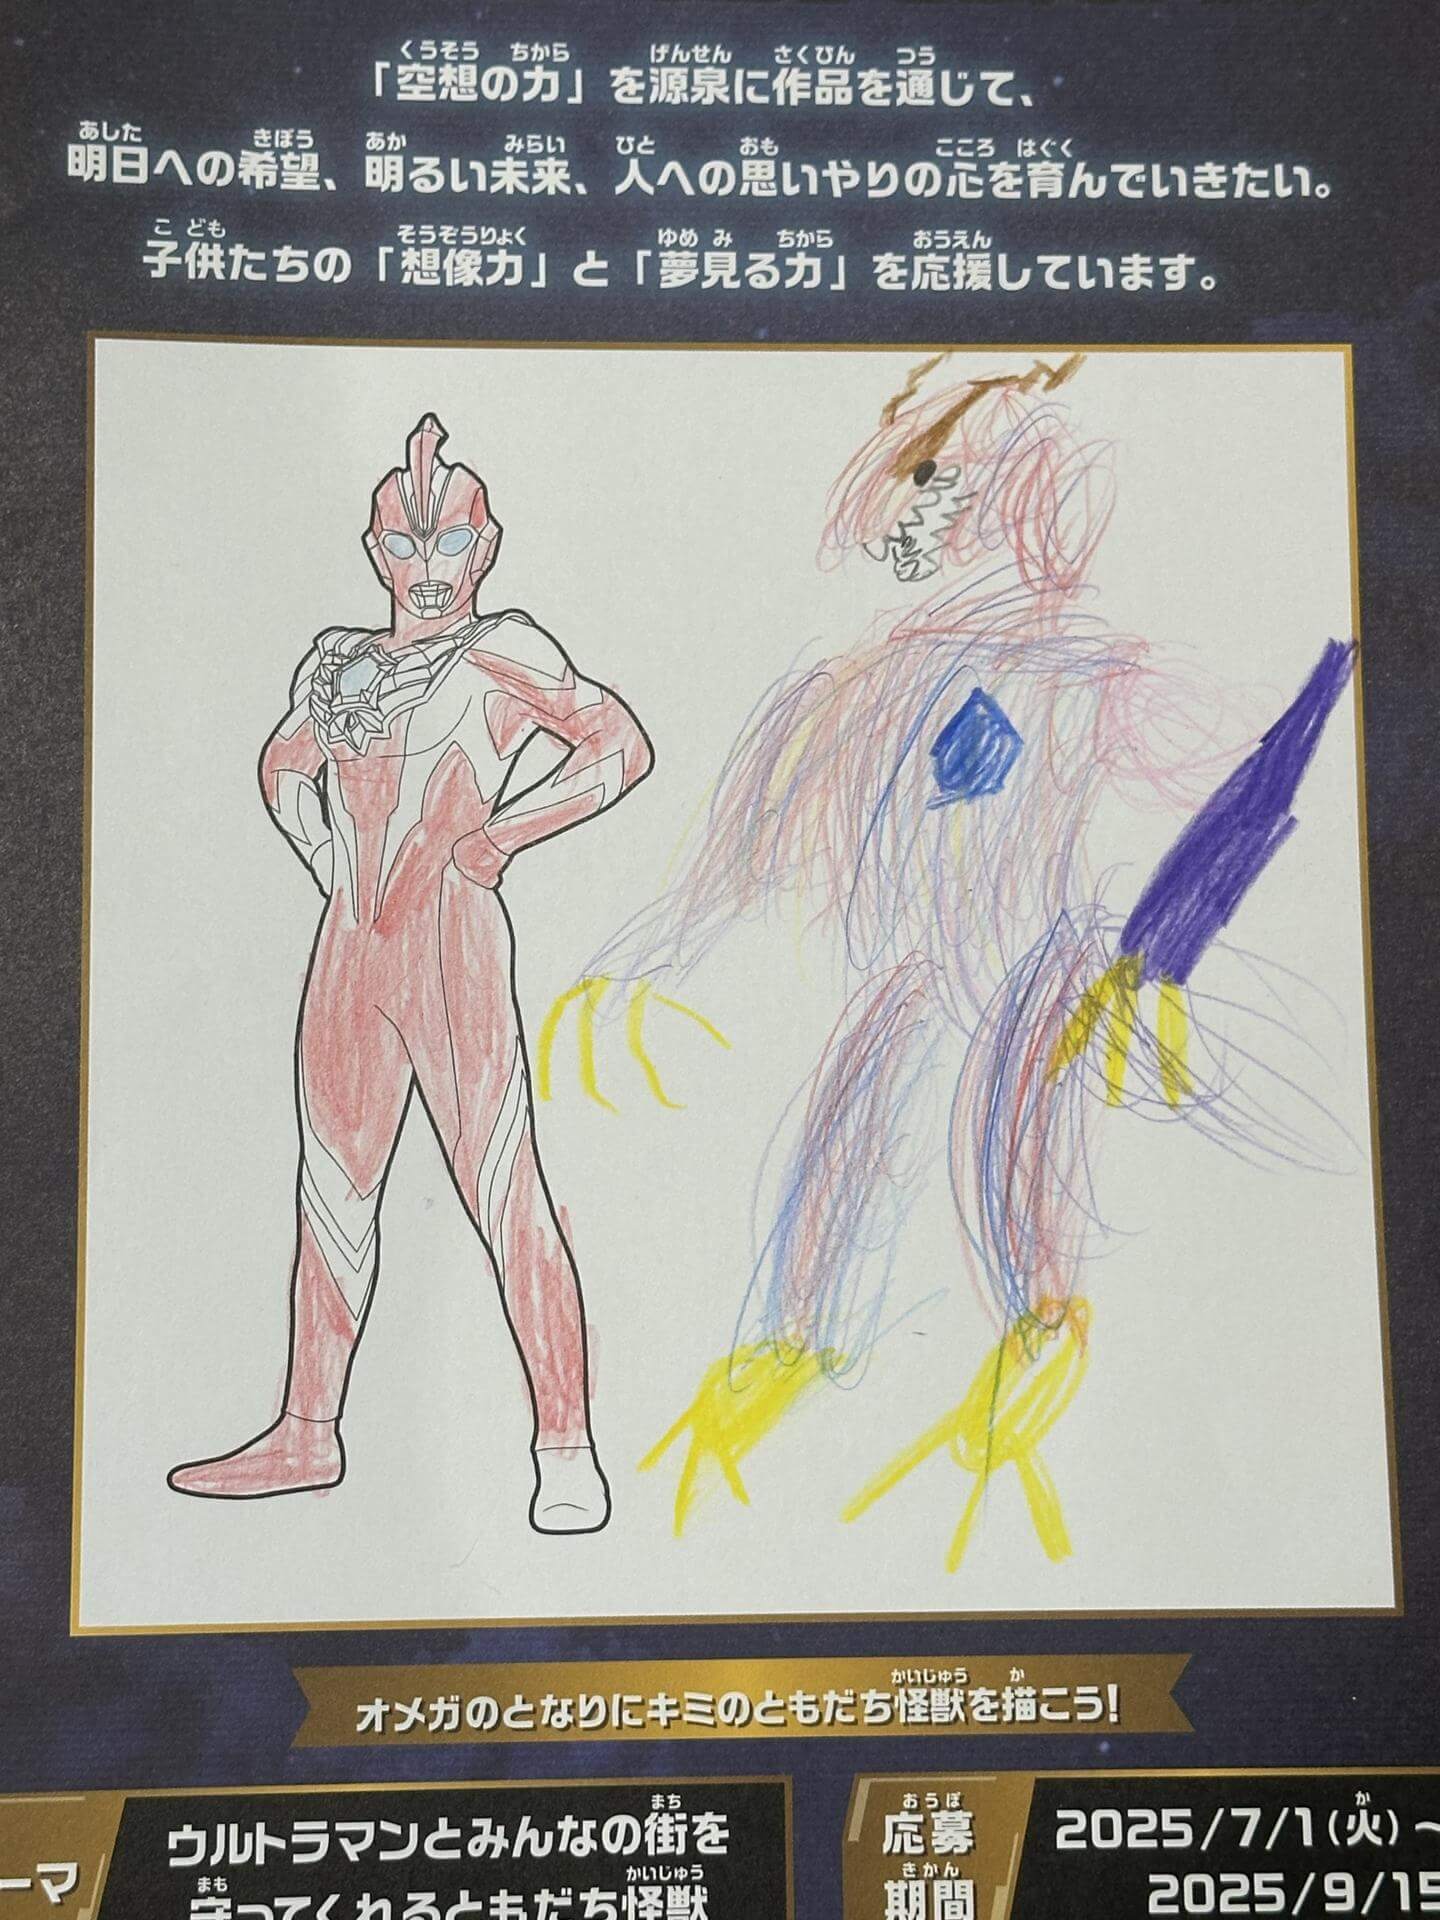 「空想の力」を源泉に作品を通じて、
明日への希望、明るい未来、人への思いやりの心を育んでいきたい。
子供たちの「想像力」と「夢見る力」を応援しています。
オメガのとなりにキミのともだち怪獣を描こう!
ーマ
ウルトラマンとみんなの街を
守ってくれるともだち怪獣
応募
期間
2025/7/1(火)~
2025/9/15